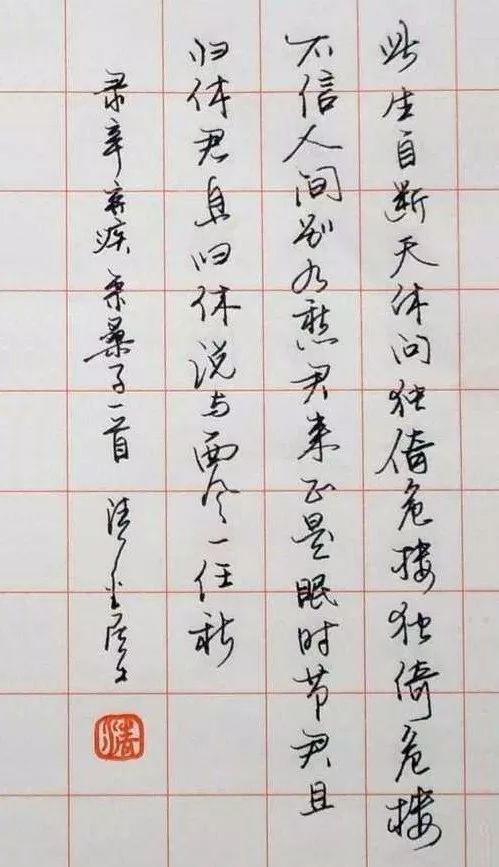 此生自断天休问独倚危楼独倚危楼
不信人间别有愁君来正是眠时节君且
归休君且归休说与西风一任秋
录辛弃疾采桑子一首 居士